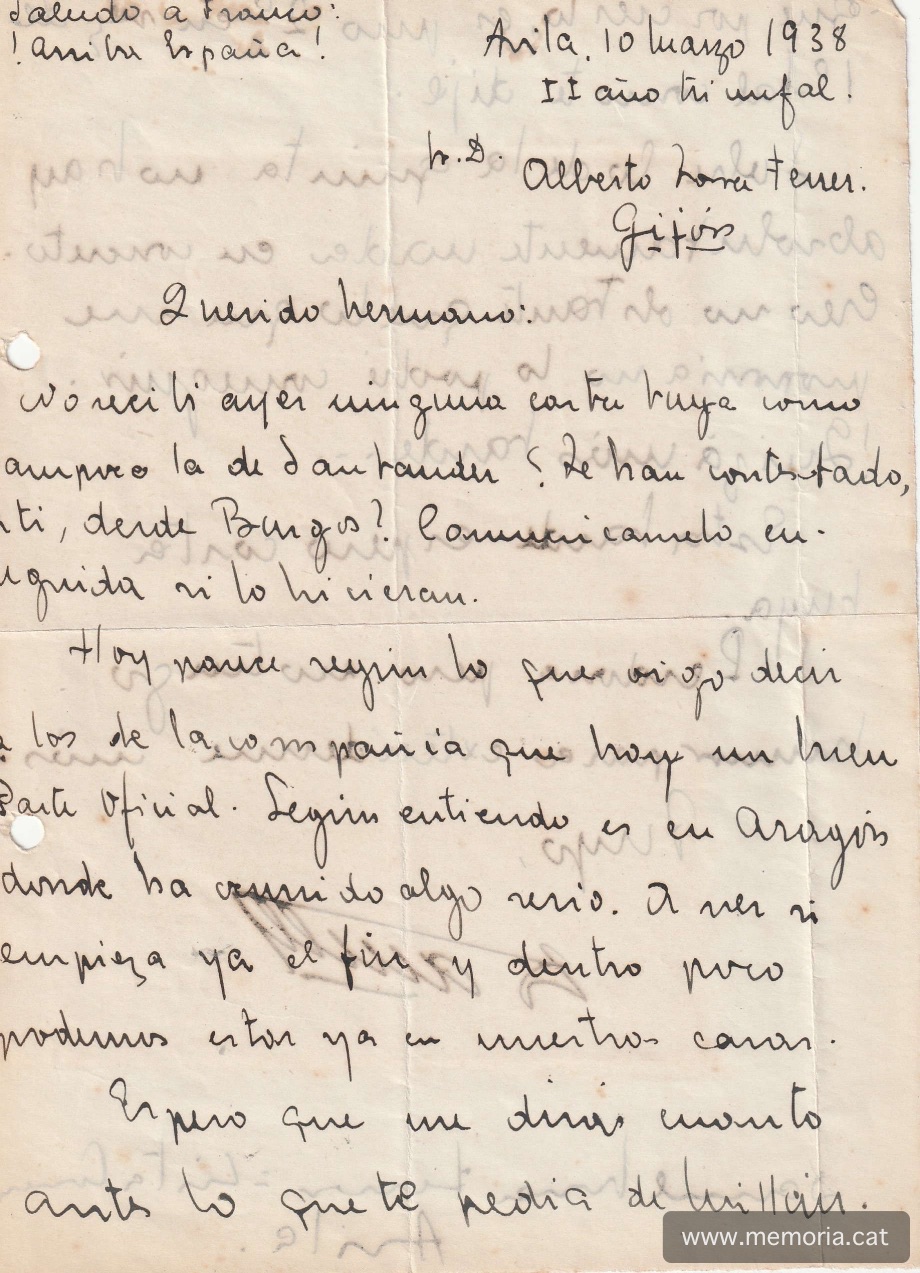 Saludo a Franco:
¡Arriba España!
Avila, 10 Marzo 1938
II año triunfal!
Sr. D. Alberto Ferrer.
Gijón
Querido hermano:
No recibi ayer ninguna carta tuya como
ampoco la de Santander ¿Te han contestado,
ti, desde Burgos? Comunicamelo en-
eguida si lo hicieran.
Hoy parece según lo que oigo decir
a los de la compañía que hay un buen
Parte Oficial. Según entiendo es en Aragón
donde ha ocurrido algo serio. A ver si
empieza ya el fin y dentro poco
podemos estar ya en nuestras casas.
Espero que me diras cuanto
antes lo que te pedia de Millán.
www.memoria.cat